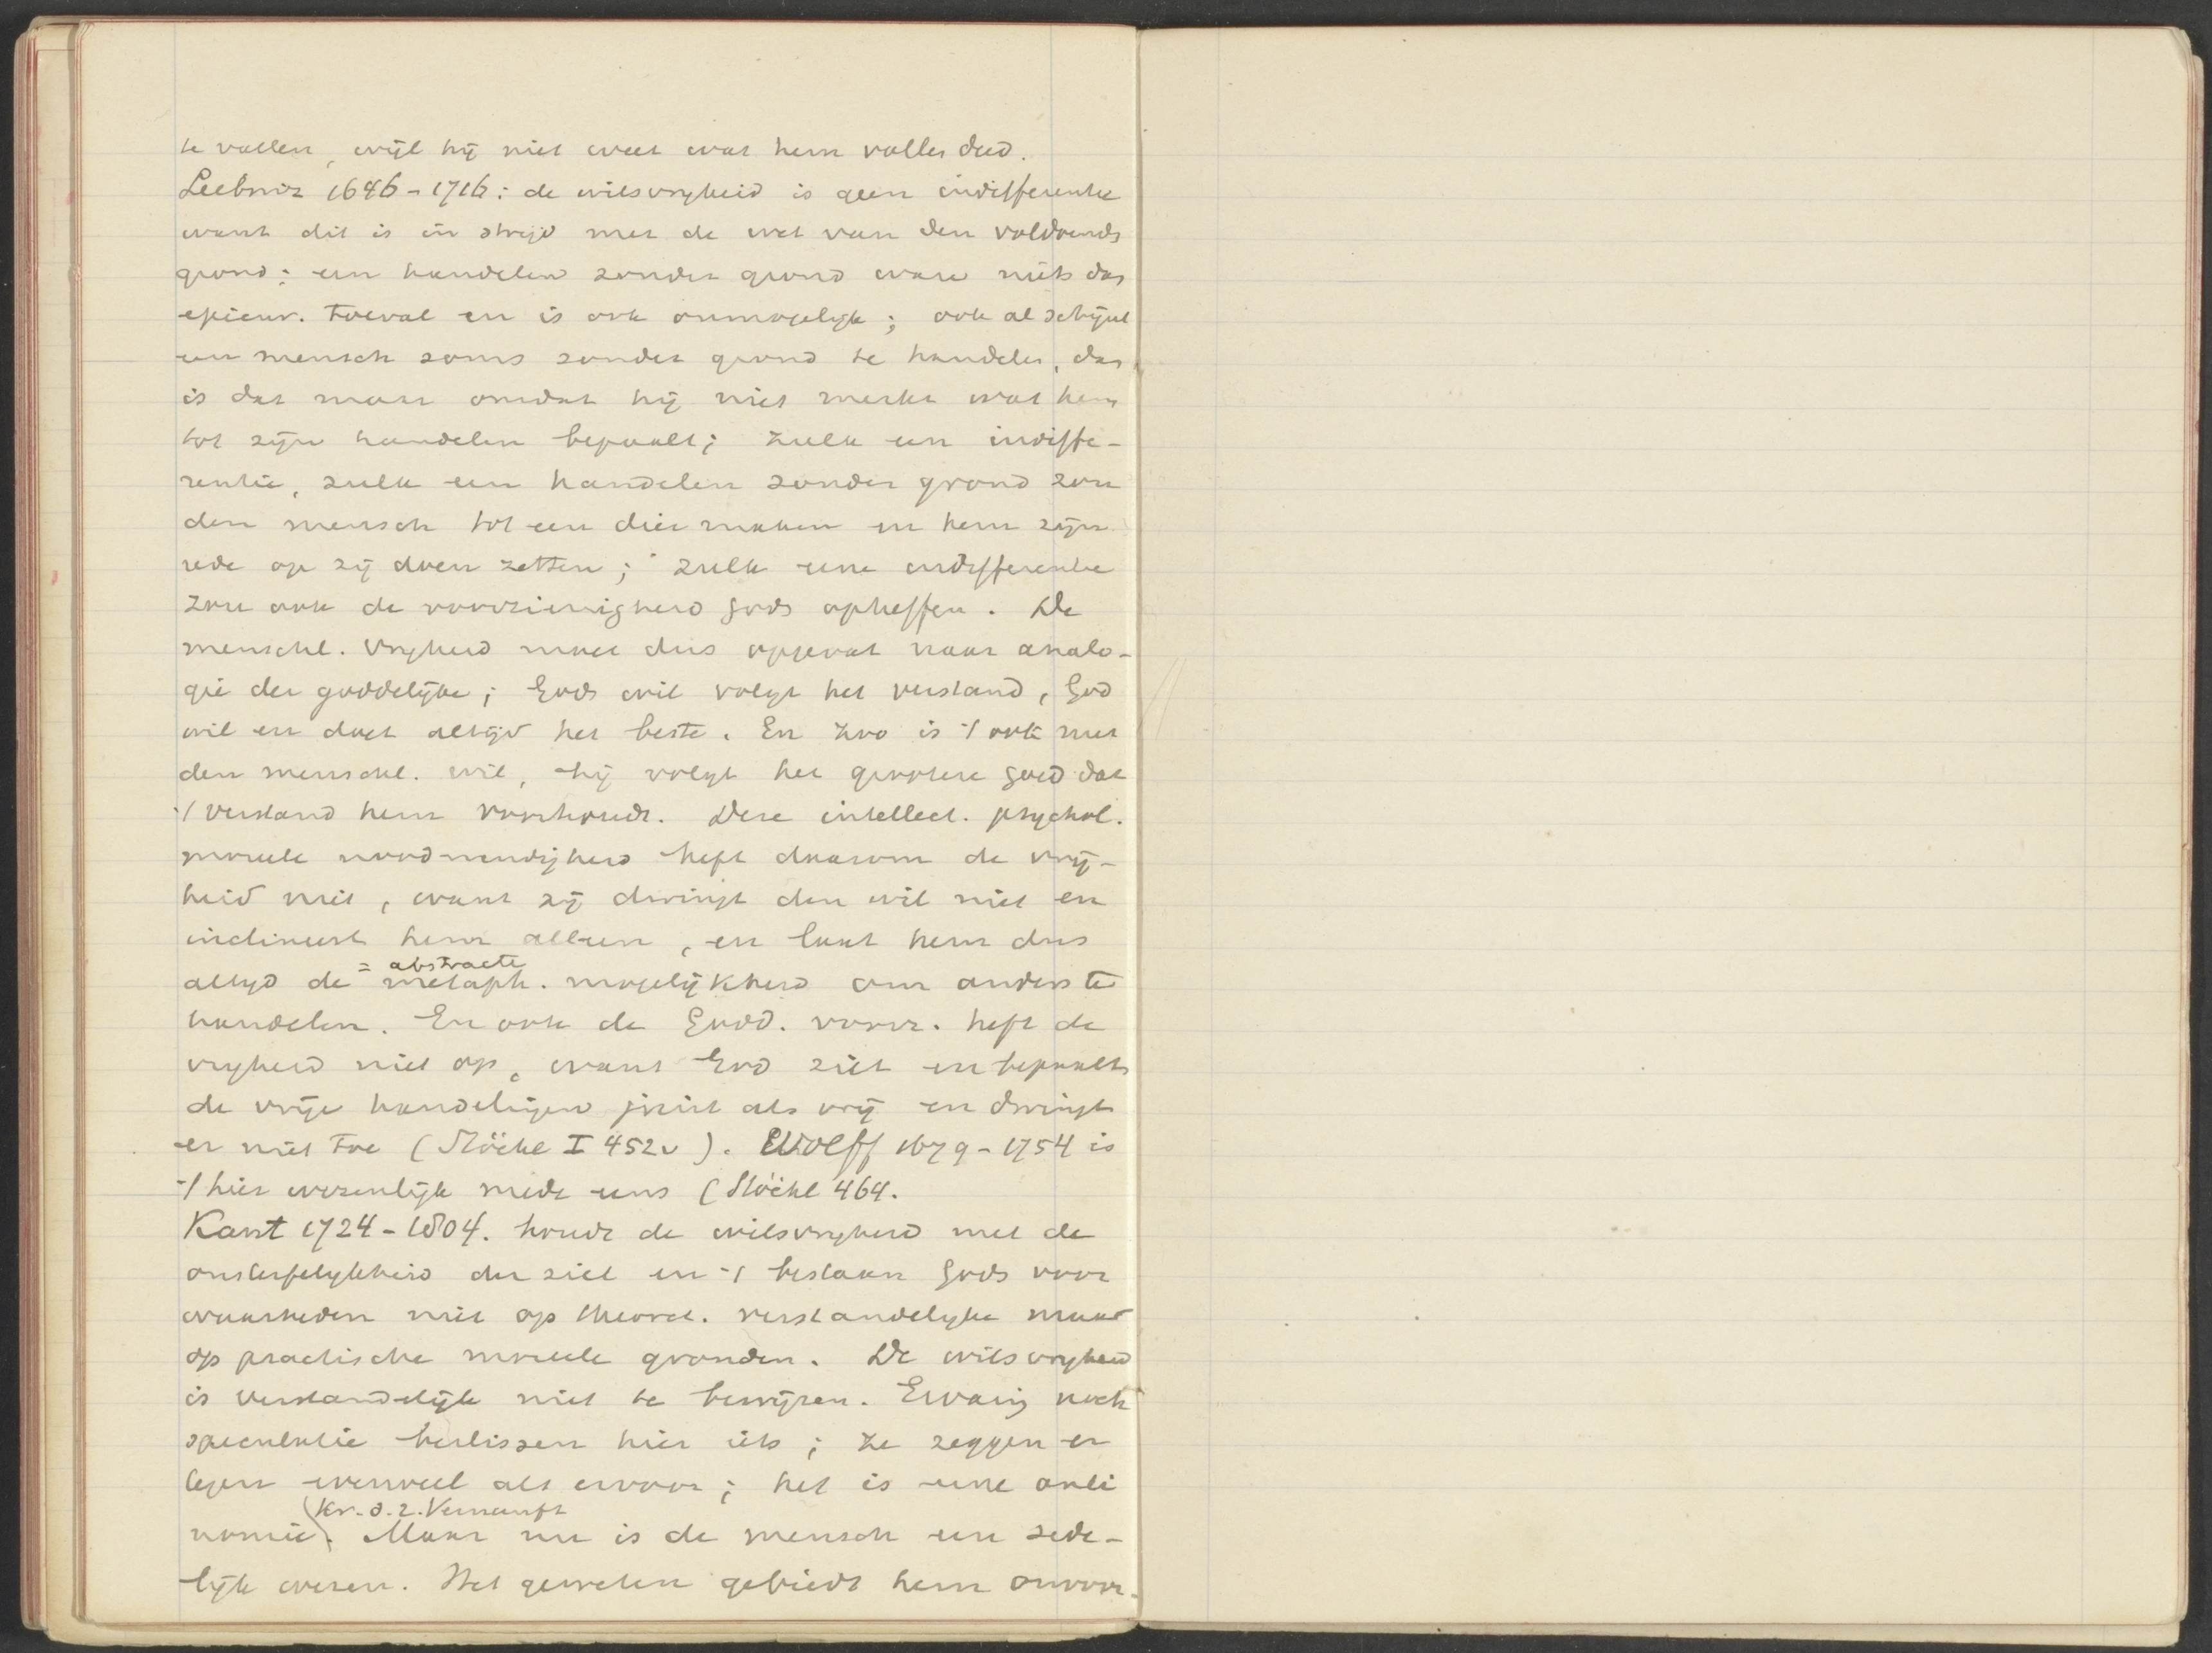 te vallen, wijl hij niet weet wat hem vallen deed.
Leibniz 1646-1716: de wilsvrijheid is geen indifferentie
want dit is in strijd met de wet van den voldoends
grond; een handelen zonder grond ware niets dan
epicur. toeval en is ook onmogelijk; ook al schijnt
een mensch soms zonder grond te handelen, dan
is dat maar omdat hij niet merkt wat hem
tot zijn handelen bepaalt; zulk een indiffe-
rentie, zulk een handelen zonder grond zou
den mensch tot een dier maken en hem zijn
rede op zij doen zetten; zulk eene indifferentie
zou ook de voorzienigheid Gods opheffen. De
menschl. vrijheid moet dus opgevat naar analo-
gie der goddelijke; Gods wil volgt het verstand, God
wil en doet altijd het beste. En zoo is 't ook met
den menschl. wil, hij volgt het grootere goed dat
't verstand hem voorhoudt. Deze intellect. psychol.
moreele noodwendigheid heft daarom de vrij-
heid niet, want zij dwingt den wil niet en
inclineert hem alleen, en laat hem dus
= abstracte
altijd de metaph. mogelijkheid om anders te
handelen. En ook de Godd. voorz. heft de
vrijheid niet op, want God ziet en bepaalt
de vrije handelingen juist als vrij en dwingt
er niet toe (Stöckl I 452v). Wolff 1679-1754 is
't hier wezenlijk mede eens (Stöckl 464.
Kant 1724-1804. houdt de wilsvrijheid met de
onsterfelijkheid der ziel en 't bestaan Gods voor
waarheden niet op theoret. verstandelijke maar
op practische moreele gronden. De wilsvrijheid
is verstandelijk niet te bewijzen. Ervaring noch
speculatie beslissen hier iets; ze zeggen er
tegen evenveel als ervoor; het is eene anti
(Kr. d. r. Vernunft
nomie). Maar nu is de mensch een zede-
lijk wezen. Het geweten gebiedt hem onvoor-